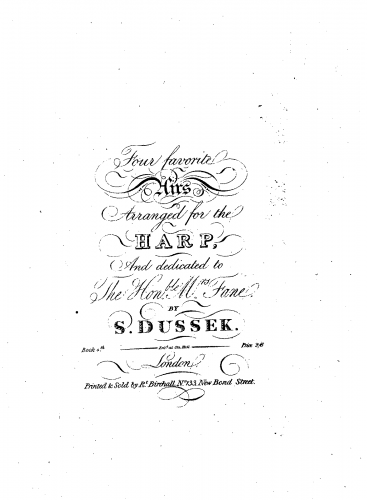 Four favorite
Airs
Arranged for the
HARP,
And dedicated to
The Hon.ble Mrs Fane.
BY
S. DUSSEK.
Book 4.th Ent.d at Sta. Hall Price 2/6
London,
Printed & Sold by R.t Birchall, No. 133, New Bond Street.